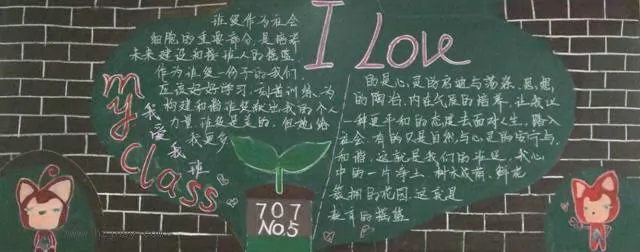 I Love
my class
我爱我班
班级作为社会
细胞的重要部分,是培养
未来建设和接班人的摇篮
作为班级一份子的我们,
应该好好学习,刻苦训练,为
构建和谐班级献出我的个人
力量,班级是美的,但他给
我更多
的是心灵的启迪与荡涤,思想
的陶冶,内在气质的培养,让我以
一种更平和的态度去面对人生,踏入
社会,有的只是自然与心灵的安宁与
和谐,这就是我们的班级,我心
中的一片净土,树木成荫,鲜花
簇拥的花园,这就是
教育的摇篮
707
NO.5